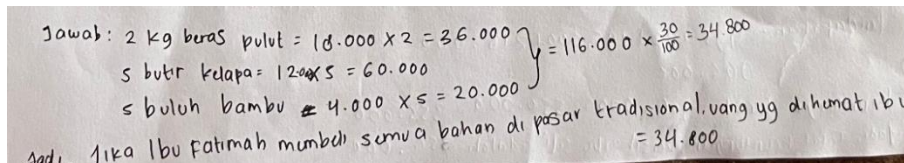 Jawab : 2 kg beras pulut = 18.000 x 2 = 36.000
5 butir kelapa = 12.000 x 5 = 60.000
5 buluh bambu = 4.000 x 5 = 20.000
= 116.000 x 30/100 = 34.800
Jadi Jika Ibu Fatimah membeli semua bahan di pasar tradisional, uang yg dihemat ibu
= 34.800